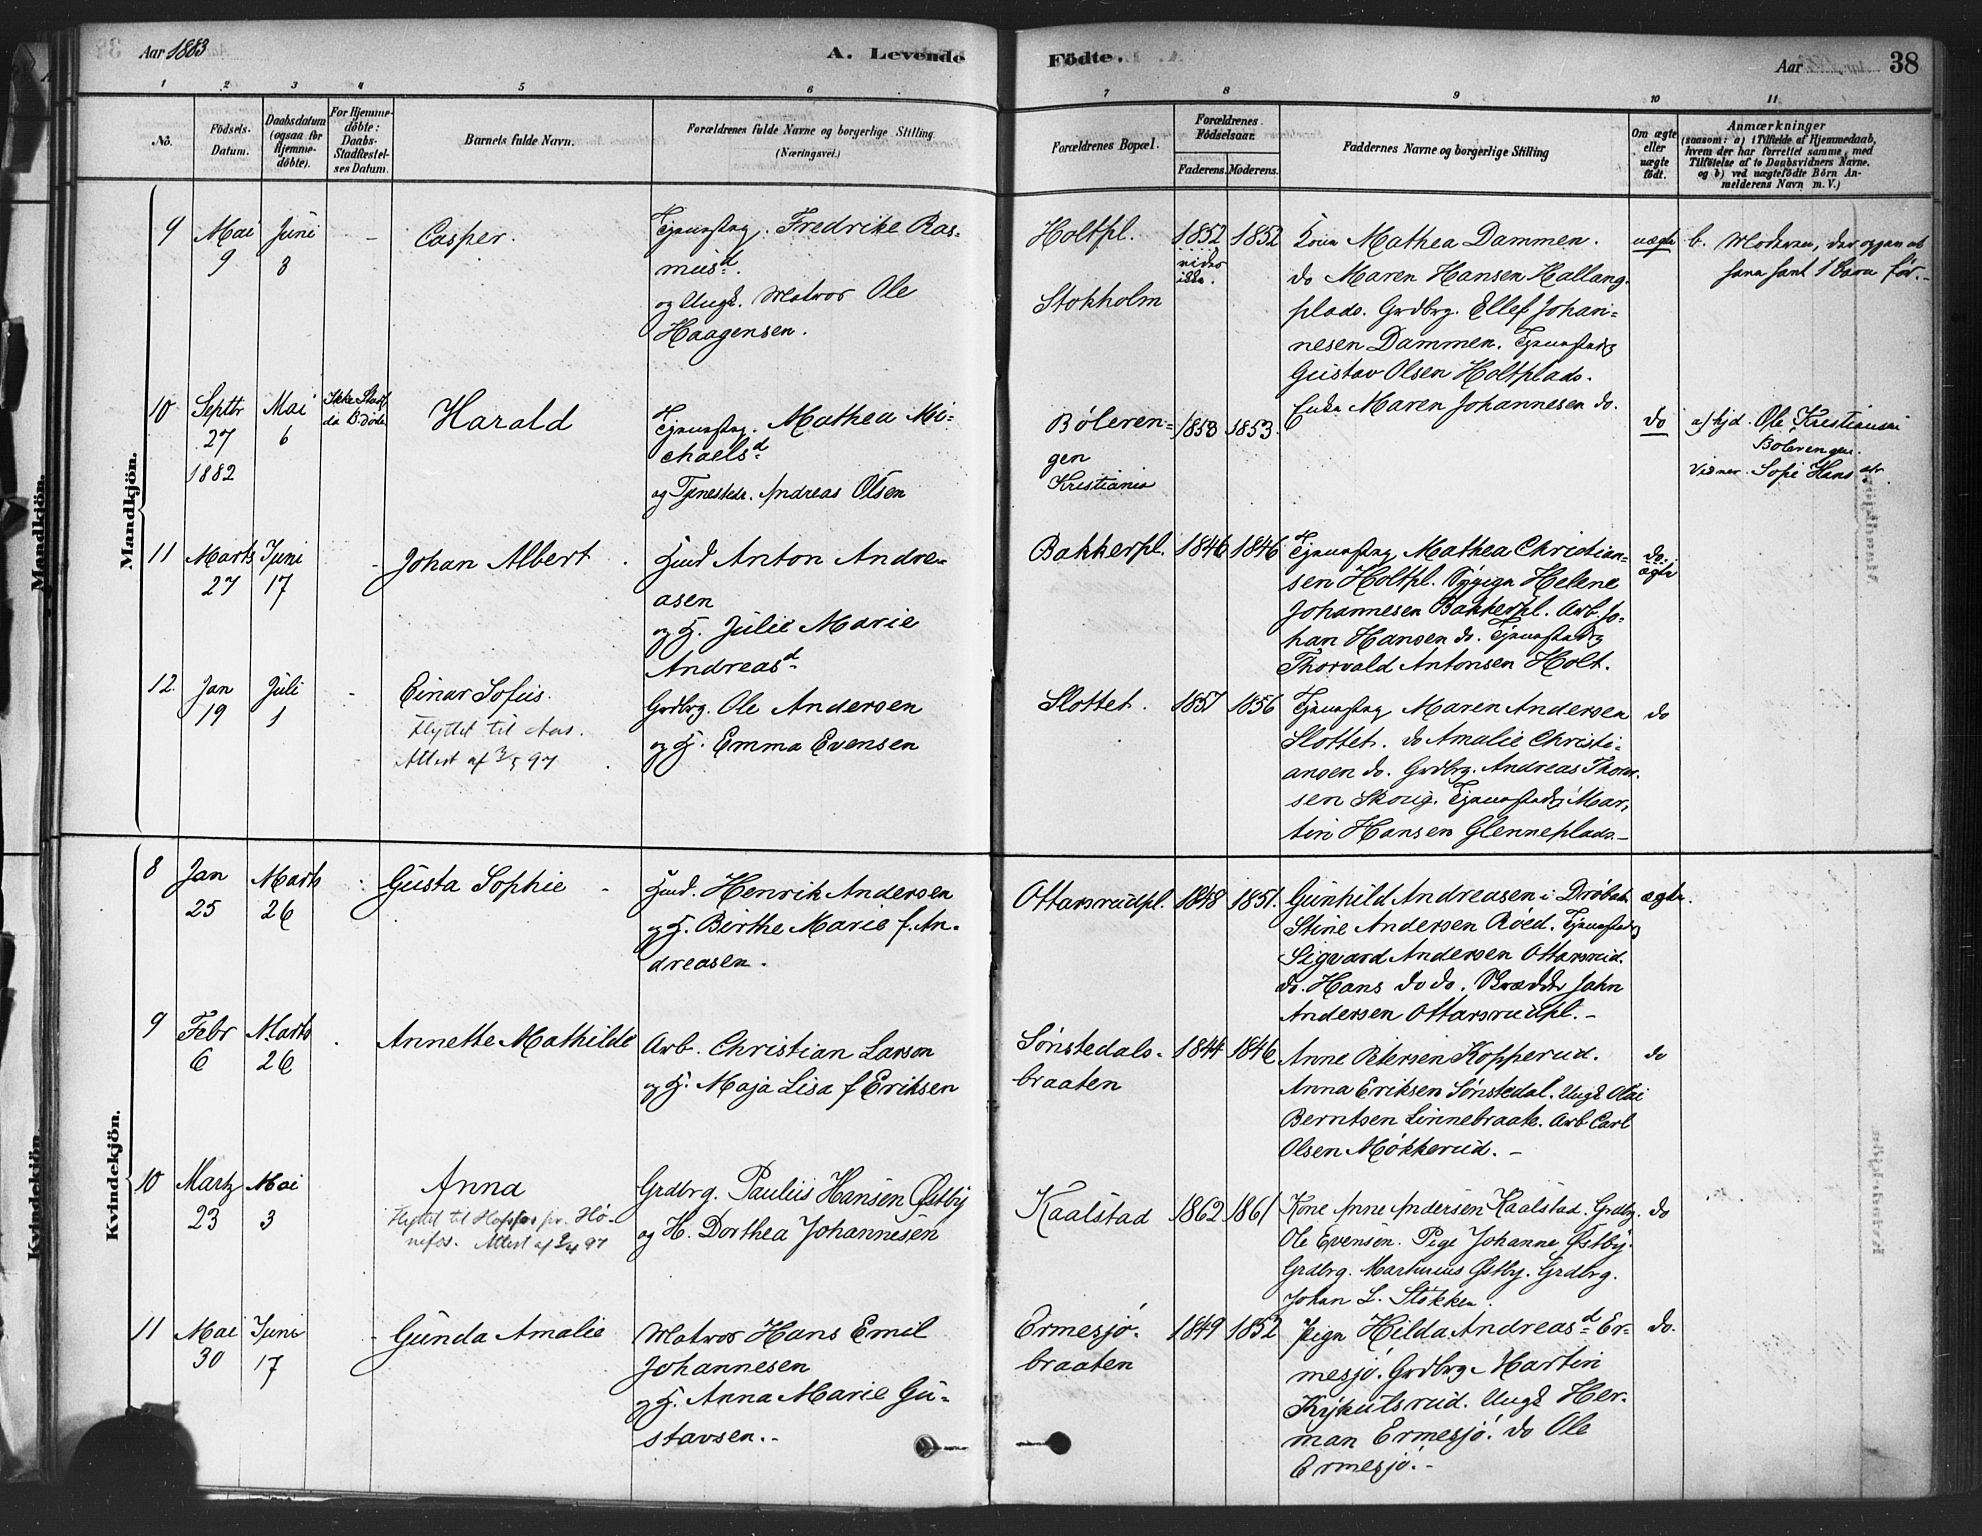 Aar 1883
A. Levende
Födte.
Aar
38
1 2 3 4 5 6 7 8 9 10 11
No.
Födsels-Datum.
Daabsdatum (ogsaa for Hjemme-döbte).
For Hjemme-döbte: Daabs-Stadfæstel-ses Datum.
Barnets fulde Navn.
Forældrenes fulde Navne og borgerlige Stilling.
(Næringsvei.)
Forældrenes Bopæl.
Forældrenes Födselsaar.
Faderens. Moderens.
Faddernes Navne og borgerlige Stilling
Om ægte eller uægte födt.
Anmærkninger
(saasom: a) i Tilfælde af Hjemmedaab,
hvem der har forrettet samme, med
Tilföielse af to Daabsvidners Navne.
og b) ved uægtefödte Börn An-
melderens Navn m. V.)
Mandkjön.
9
Mai 9
Juni 3
-
Casper.
Fredrike Ras-
musd.
og Ungk. Matros Ole
Haagensen.
Holtpl.
Stokholm
1852
vides ikke.
1852
Kone Mathea Dammen.
do Maren Hansen Hallang-
plads. Grdbrg. Ellef Johan-
nesen Dammen.
Gustav Olsen Holtplads.
Enke Maren Johannesen do.
uægte
b. Moderen,
10
Septbr 27 1882
Mai 6
Harald
Mathea Mi-
chaelsd
og Tjenestedr. Andreas Olsen
Böleren-
gen
Kristiania
1853
1853.
do
a) hjd. Ole Kristiansen
Bolerengen.
Vidner. Sofie Hans
11
Marts 27
Juni 17
-
Johan Albert
Husmd Anton Andre-
asen
og H. Julie Marie
Andreasd
Bakkerpl.
1846
1846
Mathea Christian-
sen Holtpl. Helene
Johannesen Bakkerpl. Arb. Jo-
han Hansen do.
Thorvald Antonsen Holt.
do.
ægte
12.
Jan 19
Juli 1
-
Einar Sofus.
Flyttet til Aas.
Attest af 3/5 97
Grdbrg. Ole Andersen
og H. Emma Evensen
Slottet.
1857
1856
Maren Andersen
Slottet. do Amalie Christi-
ansen do. Grdbrg. Andreas
sen Skoug. Mar-
tin Hansen Glenneplads-
do
Kvindekjön.
8
Jan 25
Marts 26
Gusta Sophie
Husmd. Henrik Andersen
og H. Birthe Marie f. An-
dreasen.
Ottarsrudpl.
1848
1851.
Gunhild Andreasen i Dröbak
Stine Andersen Röed.
Sigvard Andersen Ottarsrud.
do. Hans do do. Skrædder John
Andersen Ottarsrudpl.-
ægte.
9
Febr 6
Marts 26
Annette Mathilde
Arb. Christian Larson
og H. Maja Lisa f Eriksen
Sönstedals-
braaten
1844
1846
Anne Petersen Kopperud.
Anna Eriksen Sönstedal. Ungk Olai
Berntsen Linnebraate. Arb Carl
Olsen Mökkerud. -
do
10
Martz 23
Mai 3
Anna
Flyttet til Hö-
nefos. Attest af 97
Grdbrg. Paulus Hansen Østby
og H. Dorthea Johannesen
Kaalstad
1862
1861
Kone Anne Andersen Kaalstad. Grdbg.
Ole Evensen. Pige Johanne Østby.
Grdbrg. Martinius Østby. Grdbrg.
Johan L. Stökken.
do
11
Mai 30
Juni 17
-
Gunda Amalie
Matros Hans Emil
Johannesen
og H. Anna Marie Gu-
stavsen.-
Ermesjö-
braaten
1849
1852
Pige Hilda Andreasd Er-
mesjö. Grdbrg. Martin
Krykulsrud. Ungk Her-
man Ermesjö. do Ole
Ermesjö.-
do.